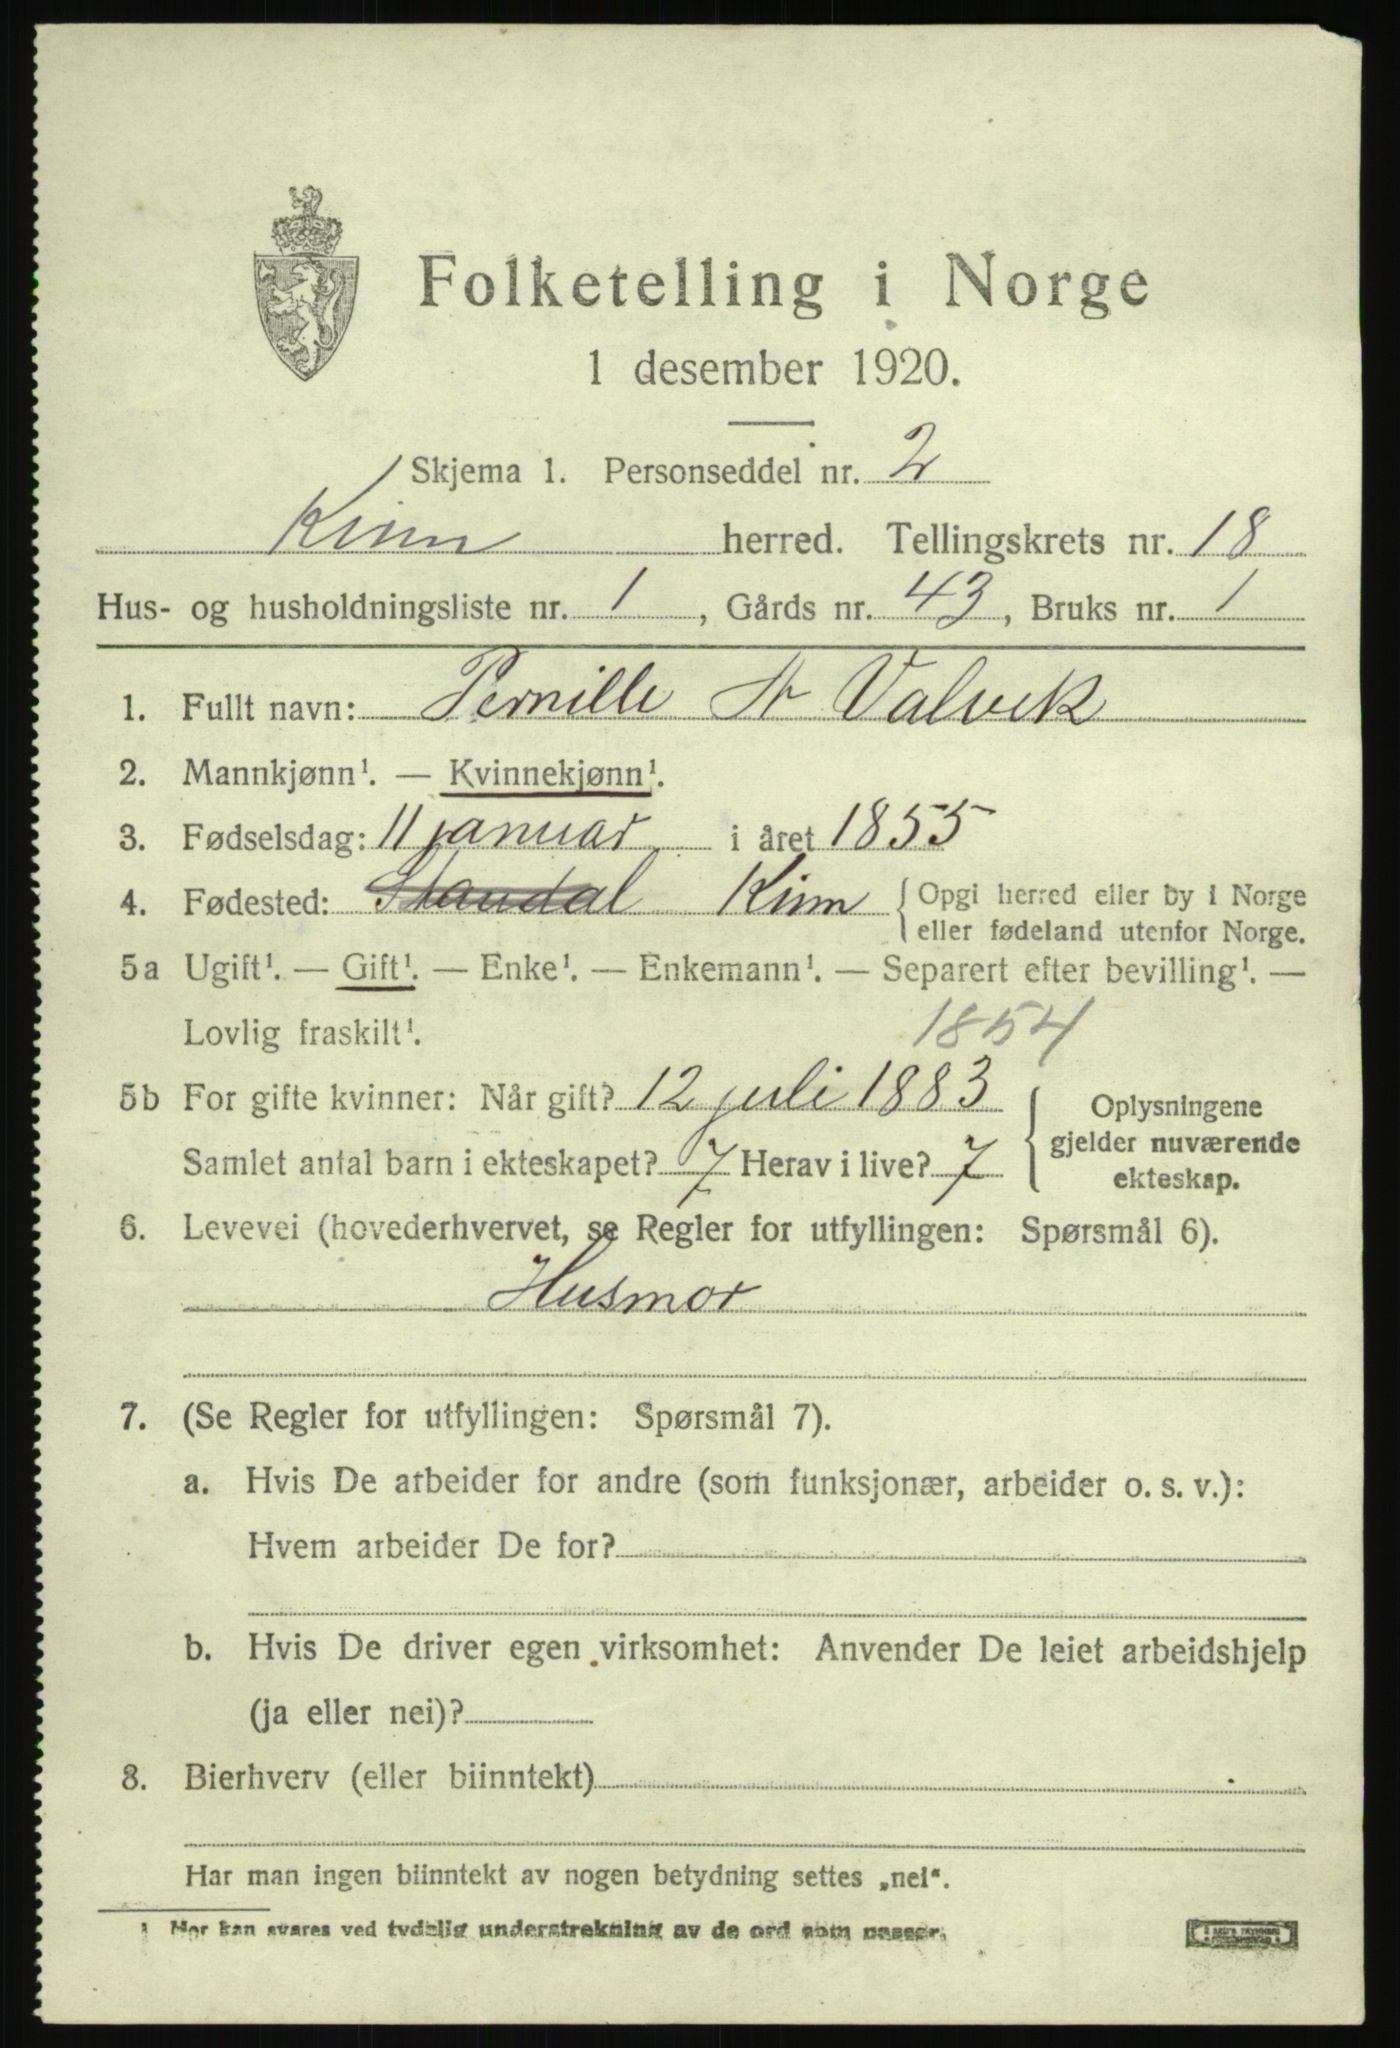 Folketelling i Norge
1 desember 1920.
Skjema 1. Personseddel nr. 2
Kinn herred. Tellingskrets nr. 18
Hus- og husholdningsliste nr. 1, Gårds nr. 43, Bruks nr. 1
1. Fullt navn: Pernille A Valvik
2. Mannkjønn¹. — Kvinnekjønn¹.
3. Fødselsdag: 11 januar i året 1855
4. Fødested: Standal Kinn { Opgi herred eller by i Norge
eller fødeland utenfor Norge.
5a Ugift¹. — Gift¹. — Enke¹. — Enkemann¹. — Separert efter bevilling¹. —
Lovlig fraskilt¹. 1854
5b For gifte kvinner: Når gift? 12 juli 1883
Samlet antal barn i ekteskapet? 7 Herav i live? 7
{ Oplysningene
gjelder nuværende
ekteskap.
6. Levevei (hovederhvervet, se Regler for utfyllingen: Spørsmål 6).
Husmor
7. (Se Regler for utfyllingen: Spørsmål 7).
a. Hvis De arbeider for andre (som funksjonær, arbeider o. s. v.):
Hvem arbeider De for?
b. Hvis De driver egen virksomhet: Anvender De leiet arbeidshjelp
(ja eller nei)?
8. Bierhverv (eller biinntekt)
Har man ingen biinntekt av nogen betydning settes „nei“.
¹ Her kan svares ved tydelig understrekning av de ord som passer.